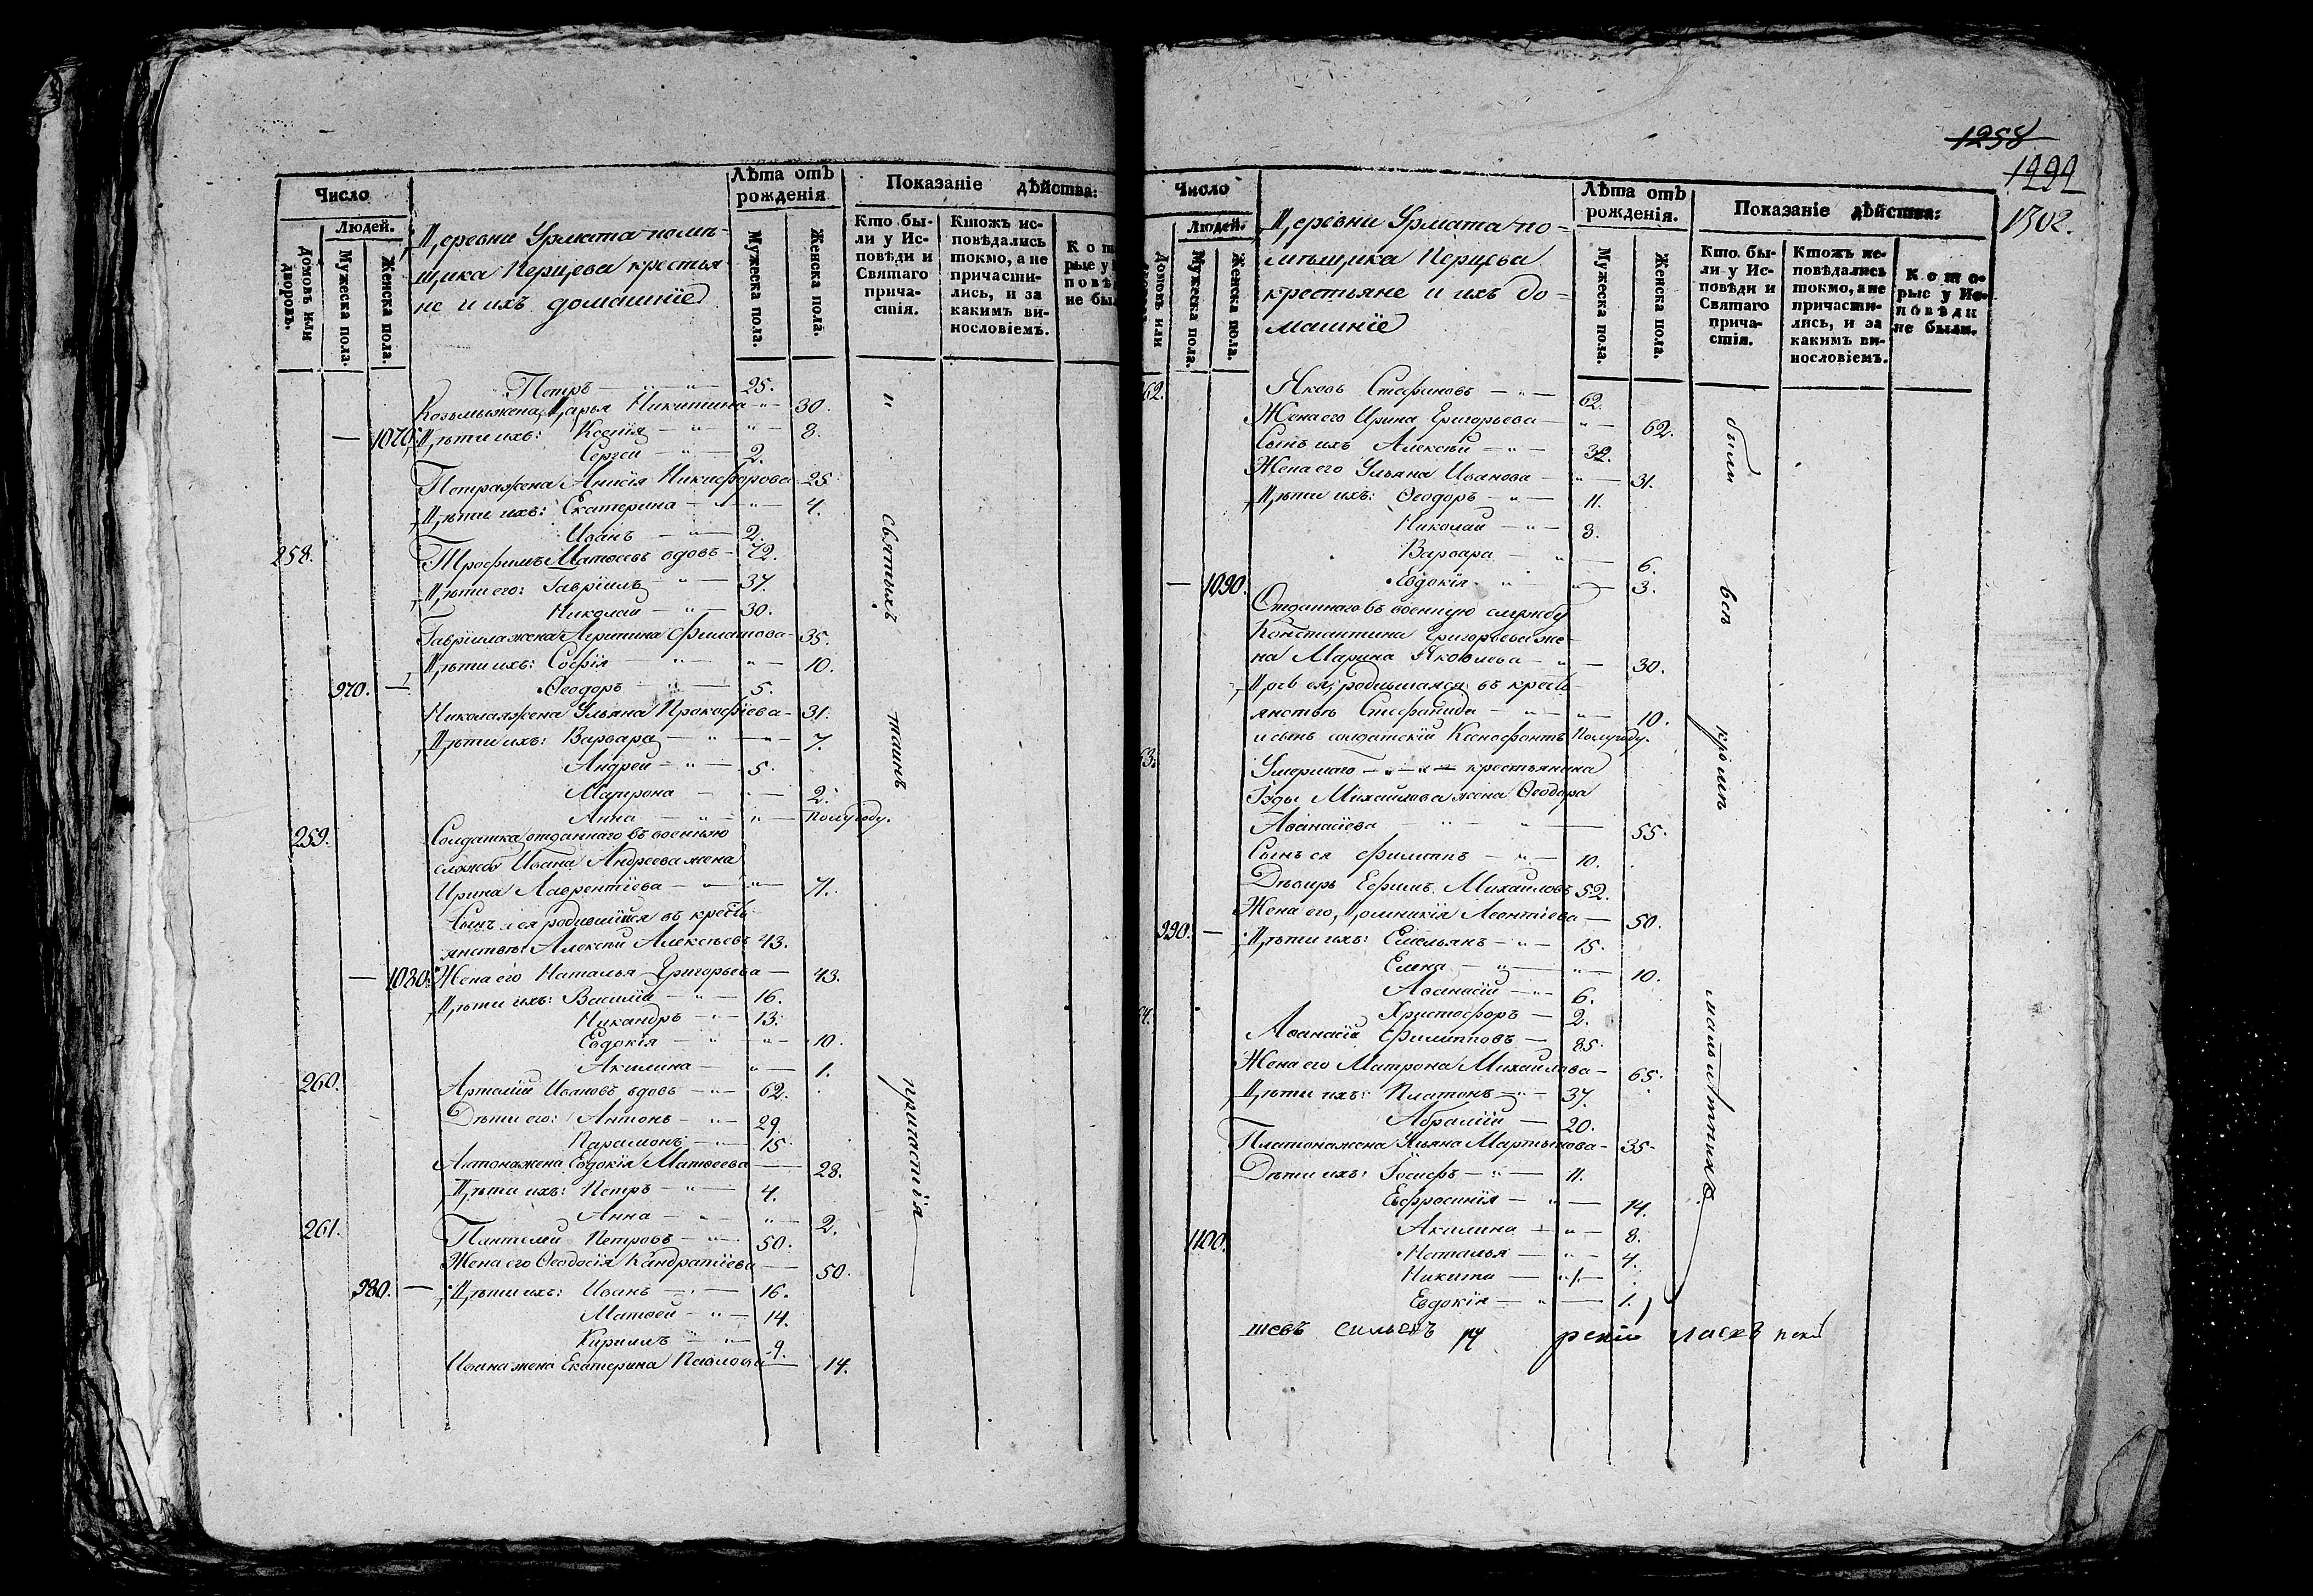 Число
Людей.
Домовъ или дворовъ.
Мужеска пола.
Женска пола.
Деревни Урмата помѣ-
щика Перцева крестья
не и ихъ домашніе
Лѣта отъ рожденія
Мужеска пола.
Женска пола.
Показаніе дѣйства:
Кто бы-
ли у Ис-
повѣди и
Святаго
прича-
стія.
Ктожъ ис-
повѣдались
токмо, а не
причасти-
лись, и за
какимъ ви-
нословіемъ.
Петръ — 25.
Козьмы жена Дарья Никитина — 30.
— 1070. Дѣти ихъ: Ксенія — 8.
Сергей — 2.
Петра жена Анисія Никифорова — 25
Дѣти ихъ: Екатерина — 4.
Иванъ — 2.
258. Трофимъ Матѳеевъ вдовъ — 72.
Дѣти его: Гавріилъ — 37.
Николай — 30.
Гавріила жена Агрипина Филатова — 35.
Дѣти ихъ: Софія — 10.
970. — Ѳеодоръ — 5.
Николая жена Ульяна Прокофіева — 31.
Дѣти ихъ: Варвара — 7.
Андрей — 5.
Матрона — 2.
Анна — Полугоду.
259. Солдатка отданнаго въ военную
службу Ивана Андреева жена
Ирина Лаврентіева — 71.
Сынъ ея родившійся въ кресть
янствѣ: Алексѣй Алексѣевъ 43.
— 1080. Жена его Наталья Григорьева — 43.
Дѣти ихъ: Василій — 16.
Никандръ — 13.
Евдокія — 10.
Акилина — 1.
260. Артемій Ивановъ вдовъ — 62.
Дѣти его: Антонъ — 29.
Парамонъ — 15.
Антона жена Евдокія Матѳеева — 28.
Дѣти ихъ: Петръ — 4.
Анна — 2.
261. Пантелей Петровъ — 50.
Жена его Ѳеодосія Кандратіева — 50.
980. — Дѣти ихъ: Иванъ — 16.
Матвей — 14.
Кириллъ — 9.
Ивана жена Екатерина Павлова — 14.
святыхъ
таинъ
причастія
1258
1302.
Число
Людей.
Домовъ или
Мужеска пола
Женска пола.
Деревни Урмата по-
мѣщика Перцева
крестьяне и ихъ до-
машніе
Лѣта отъ рожденія.
Мужеска пола.
Женска пола.
Показаніе дѣйства:
Кто бы-
ли у Ис-
повѣди и
Святаго
прича-
стія.
Ктожъ ис-
повѣдались
токмо, а не
причасти-
лись, и за
какимъ ви-
нословіемъ.
Кото-
рые у Ис-
повѣди
не были.
62. Яковъ Стефановъ — 62.
Жена его Ирина Григорьева — 62.
Сынъ ихъ Алексѣй — 32.
Жена его Ульяна Иванова — 31.
Дѣти ихъ: Ѳеодоръ — 11.
Николай — 8.
Варвара — 6.
— 1090. Евдокія — 3.
Отданнаго въ военную службу
Константина Григорьева же-
на Марина Яковлева — 30.
Дочь ея, родившаяся въ кресть
янствѣ Стефанида — 10.
и сынъ солдатскій Ксенофонтъ Полугоду.
63. Умершаго — крестьянина
Михайлова жена Ѳеодора
Аѳанасіева — 55.
Сынъ ея Филиппъ — 10.
Дѣверь Ефимъ Михайловъ 52.
Жена его, Домникія Леонтіева — 50.
990. — Дѣти ихъ: Емельянъ — 15.
Елена — 10.
Аѳанасій — 6.
Христофоръ — 2.
64. Аѳанасій Филипповъ — 85.
Жена его Матрона Михайлова — 65.
Дѣти ихъ: Платонъ — 37.
Абрамій — 20.
Платона жена Ульяна Мартынова — 35.
Дѣти ихъ: Іосифъ — 11.
Евфросинія — 14.
Акилина — 8.
1100. Наталья — 4.
Никита — 1.
Евдокія — 1.
были
всѣ
кромѣ
малолѣтнихъ